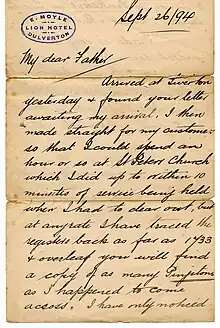 E. MOYLE
LION HOTEL
DULVERTON
Sept 26/94
My dear Father
Arrived at Tiverton
yesterday & found your letter
awaiting my arrival, I then
made straight for my customer
so that I could spend an
hour or so at St Peters Church
which I did up to within 10
minutes of service being held
when I had to clear out, but
at any rate I have traced the
registers back as far as 1733
& overleaf you will find
a copy of as many
as I happened to come
across. I have only noticed